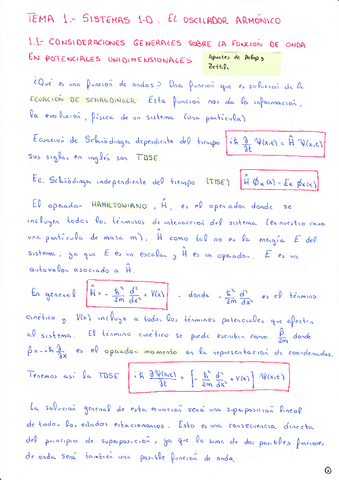 TEMA 1.- SISTEMAS 1-D. EL OSCILADOR ARMÓNICO
1.1- CONSIDERACIONES GENERALES SOBRE LA FUNCIÓN DE ONDA
EN POTENCIALES UNIDIMENSIONALES
Apuntes de
¿Qué es una función de ondas? Una función que es solución de la
ECUACIÓN DE SCHRÖDINGER. Esta función nos da la información,
la evolución, física de un sistema (una partícula)
Ecuación de Schrödinger dependiente del tiempo iħ ∂/∂t Ψ(x,t) = Ĥ Ψ(x,t)
sus siglas en inglés son TDSE.
Ec. Schrödinger independiente del tiempo (TISE) Ĥ ϕk(x) = Ek ϕk(x)
El operador HAMILTONIANO, Ĥ, es el operador donde se
incluyen todos los términos de interacción del sistema (en nuestro caso
una partícula de masa m). Ĥ como tal no es la energía E del
sistema, ya que E es un escalar y Ĥ es un operador. E es un
autovalor asociado a Ĥ.
En general Ĥ = - ħ²/2m d²/dx² + V(x) , donde - ħ²/2m d²/dx² es el término
cinético y V(x) incluye a todos los términos potenciales que afecten
al sistema. El término cinético se puede escribir como p̂/2m donde
p̂ = -iħ ∂/∂x es el operador momento en la representación de coordenadas.
Tenemos así la TDSE iħ ∂Ψ(x,t)/∂t = [- ħ²/2m d²/dx² + V(x)] Ψ(x,t)
La solución general de esta ecuación será una superposición lineal
de todos los estados estacionarios. Esto es una consecuencia directa
del principio de superposición, ya que la suma de dos posibles funciones
de onda será también una posible función de onda.